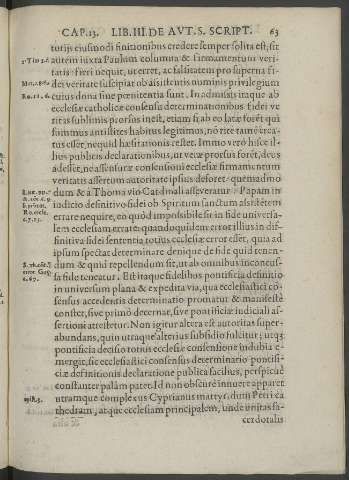 CAP. 13. LIB. III. DE AVT. S. SCRIPT. 63
totijs eiusmodi finitionibus credere semper solita est, sit
autem iuxta Paulum columna & firmamentum veri
tatis: fieri nequit, ut erret, ac falsitatem pro superna fi
dei veritate suscipiat ob assistentis numinis privilegium
cuius dona sine pœnitentia sunt. In admissis itaque ab
ecclesia catholicæ consensu determinationibus fidei ve
ritas sublimis prorsus inest, etiam si ab eo latæ forët qui
summus antistites habitus legitimos, nō rite tamē crea-
tus esset, nequid hæsitationis restet. Immo verò hisce il-
lius publicis declarationibus, ut veræ prorsus forēt, deus
adesset, ne assensuræ consensioni ecclesiæ firmamentum
veritatis assertum autoritate ipsius deforet: quēadmo
dum & à Thoma vio Cardinali asseveratur: Papam in
iudicio definitivo fidei ob Spiritum sanctum assistētem
errare nequire, eo quòd impossibile sit in fide universa-
lem ecclesiam errare: quandoquidem error illius in dif-
finitiva fidei sententia totius ecclesiæ error esset, quia ad
ipsum spectat determinare denique de fide quid tenen-
dum & quid repellendum sit, ut ab omnibus inconcus-
sa fide teneatur. Est itaque fidelibus pontificia definitio
in universum plana & expedita via, qua ecclesiastici cō-
sensus accedentis determinatio promatur & manifestè
constet, sive primò decernat, sive pontificiæ iudiciali as-
sertioni attestetur. Non igitur altera est autoritas super-
abundans, quin utraque alterius subsidio fulcitur; utq;
pontificia decisio totius ecclesiæ consensione indubia e-
mergit, sic ecclesiastici consensus determinatio pontifi-
ciæ definitionis declaratione publica facilius, perspicuè
constanter palàm patet. Id non obscurè innuere apparet
utramque complexus Cyprianus martyr, dum Petri ca
thedram, atque ecclesiam principalem, unde unitas sa-
cerdotalis
epist. 3.